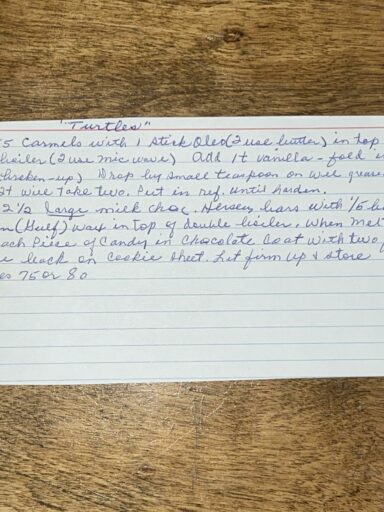 "Turtles"
5 Carmels with 1 stick Oleo (I use butter) in top
boiler (I use micwave) Add 1t vanilla - fold in
broken-up) Drop by small teaspoon on well grease
It will take two. Put in ref. until harden.
2½ large milk choc. Hersey bars with 1/5 ba
(Gulf) wax in top of double boiler, When mel
ach Piece of Candy in Chocolate Coat with two
back on Cookie Sheet. Let firm up & store
es 75 or 80